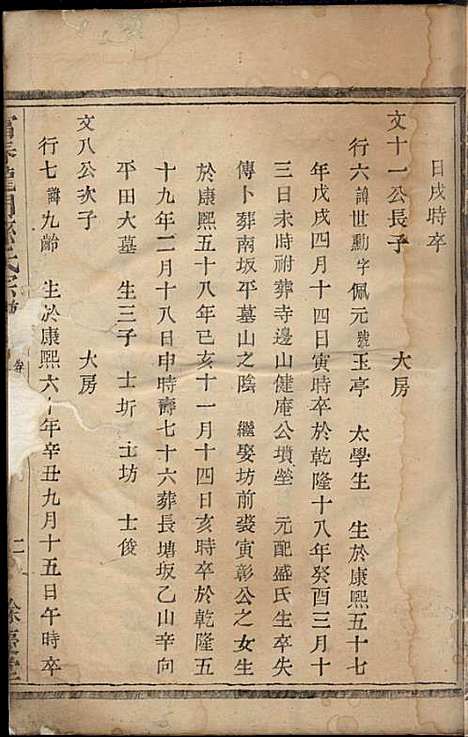 日戌時卒
文十一公長子　大房
行六諱世勳字佩元號玉亭　太學生　生於康熙五十七
年戊戌四月十四日寅時卒於乾隆十八年癸酉三月十
三日未時祔葬寺邊山健庵公墳塋　元配盛氏生卒失
傳卜葬南坂平墓山之陰　繼娶坊前裘寅彰公之女生
於康熙五十八年己亥十一月十四日亥時卒於乾隆五
十九年二月十八日申時壽七十六葬長塘坂乙山辛向
平田大墓　生三子　士圻　士坊　士俊
文八公次子　大房
行七諱九齡　生於康熙六十年辛丑九月十五日午時卒
卷
二